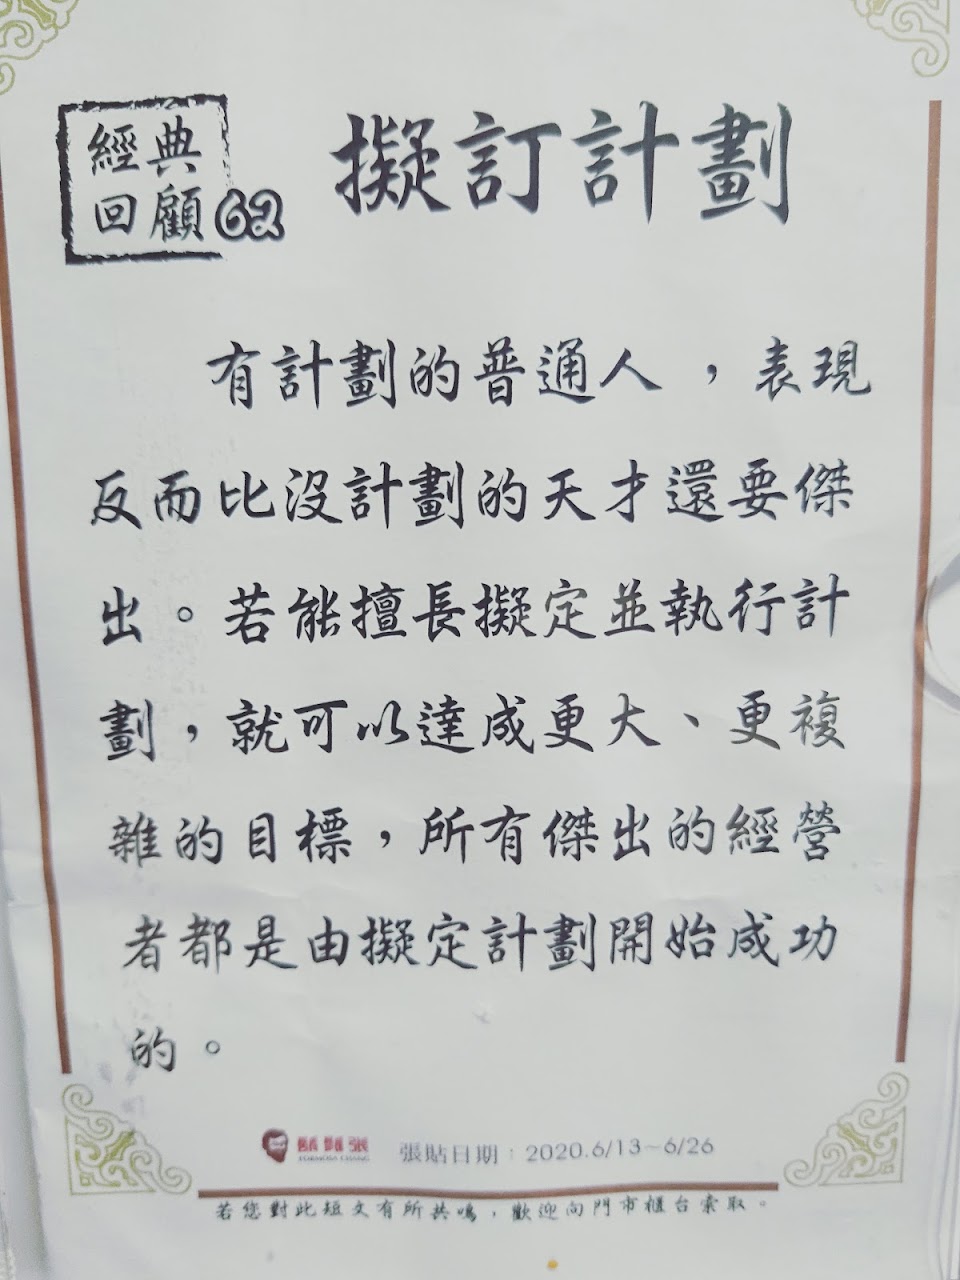 經典
回顧62
擬訂計劃
有計劃的普通人，表現
反而比沒計劃的天才還要傑
出。若能擅長擬定並執行計
劃，就可以達成更大、更複
雜的目標，所有傑出的經營
者都是由擬定計劃開始成功
的。
鬍鬚張
FORMOSA CHANG
張貼日期：2020.6/13~6/26
若您對此短文有所共鳴，歡迎向門市櫃台索取。